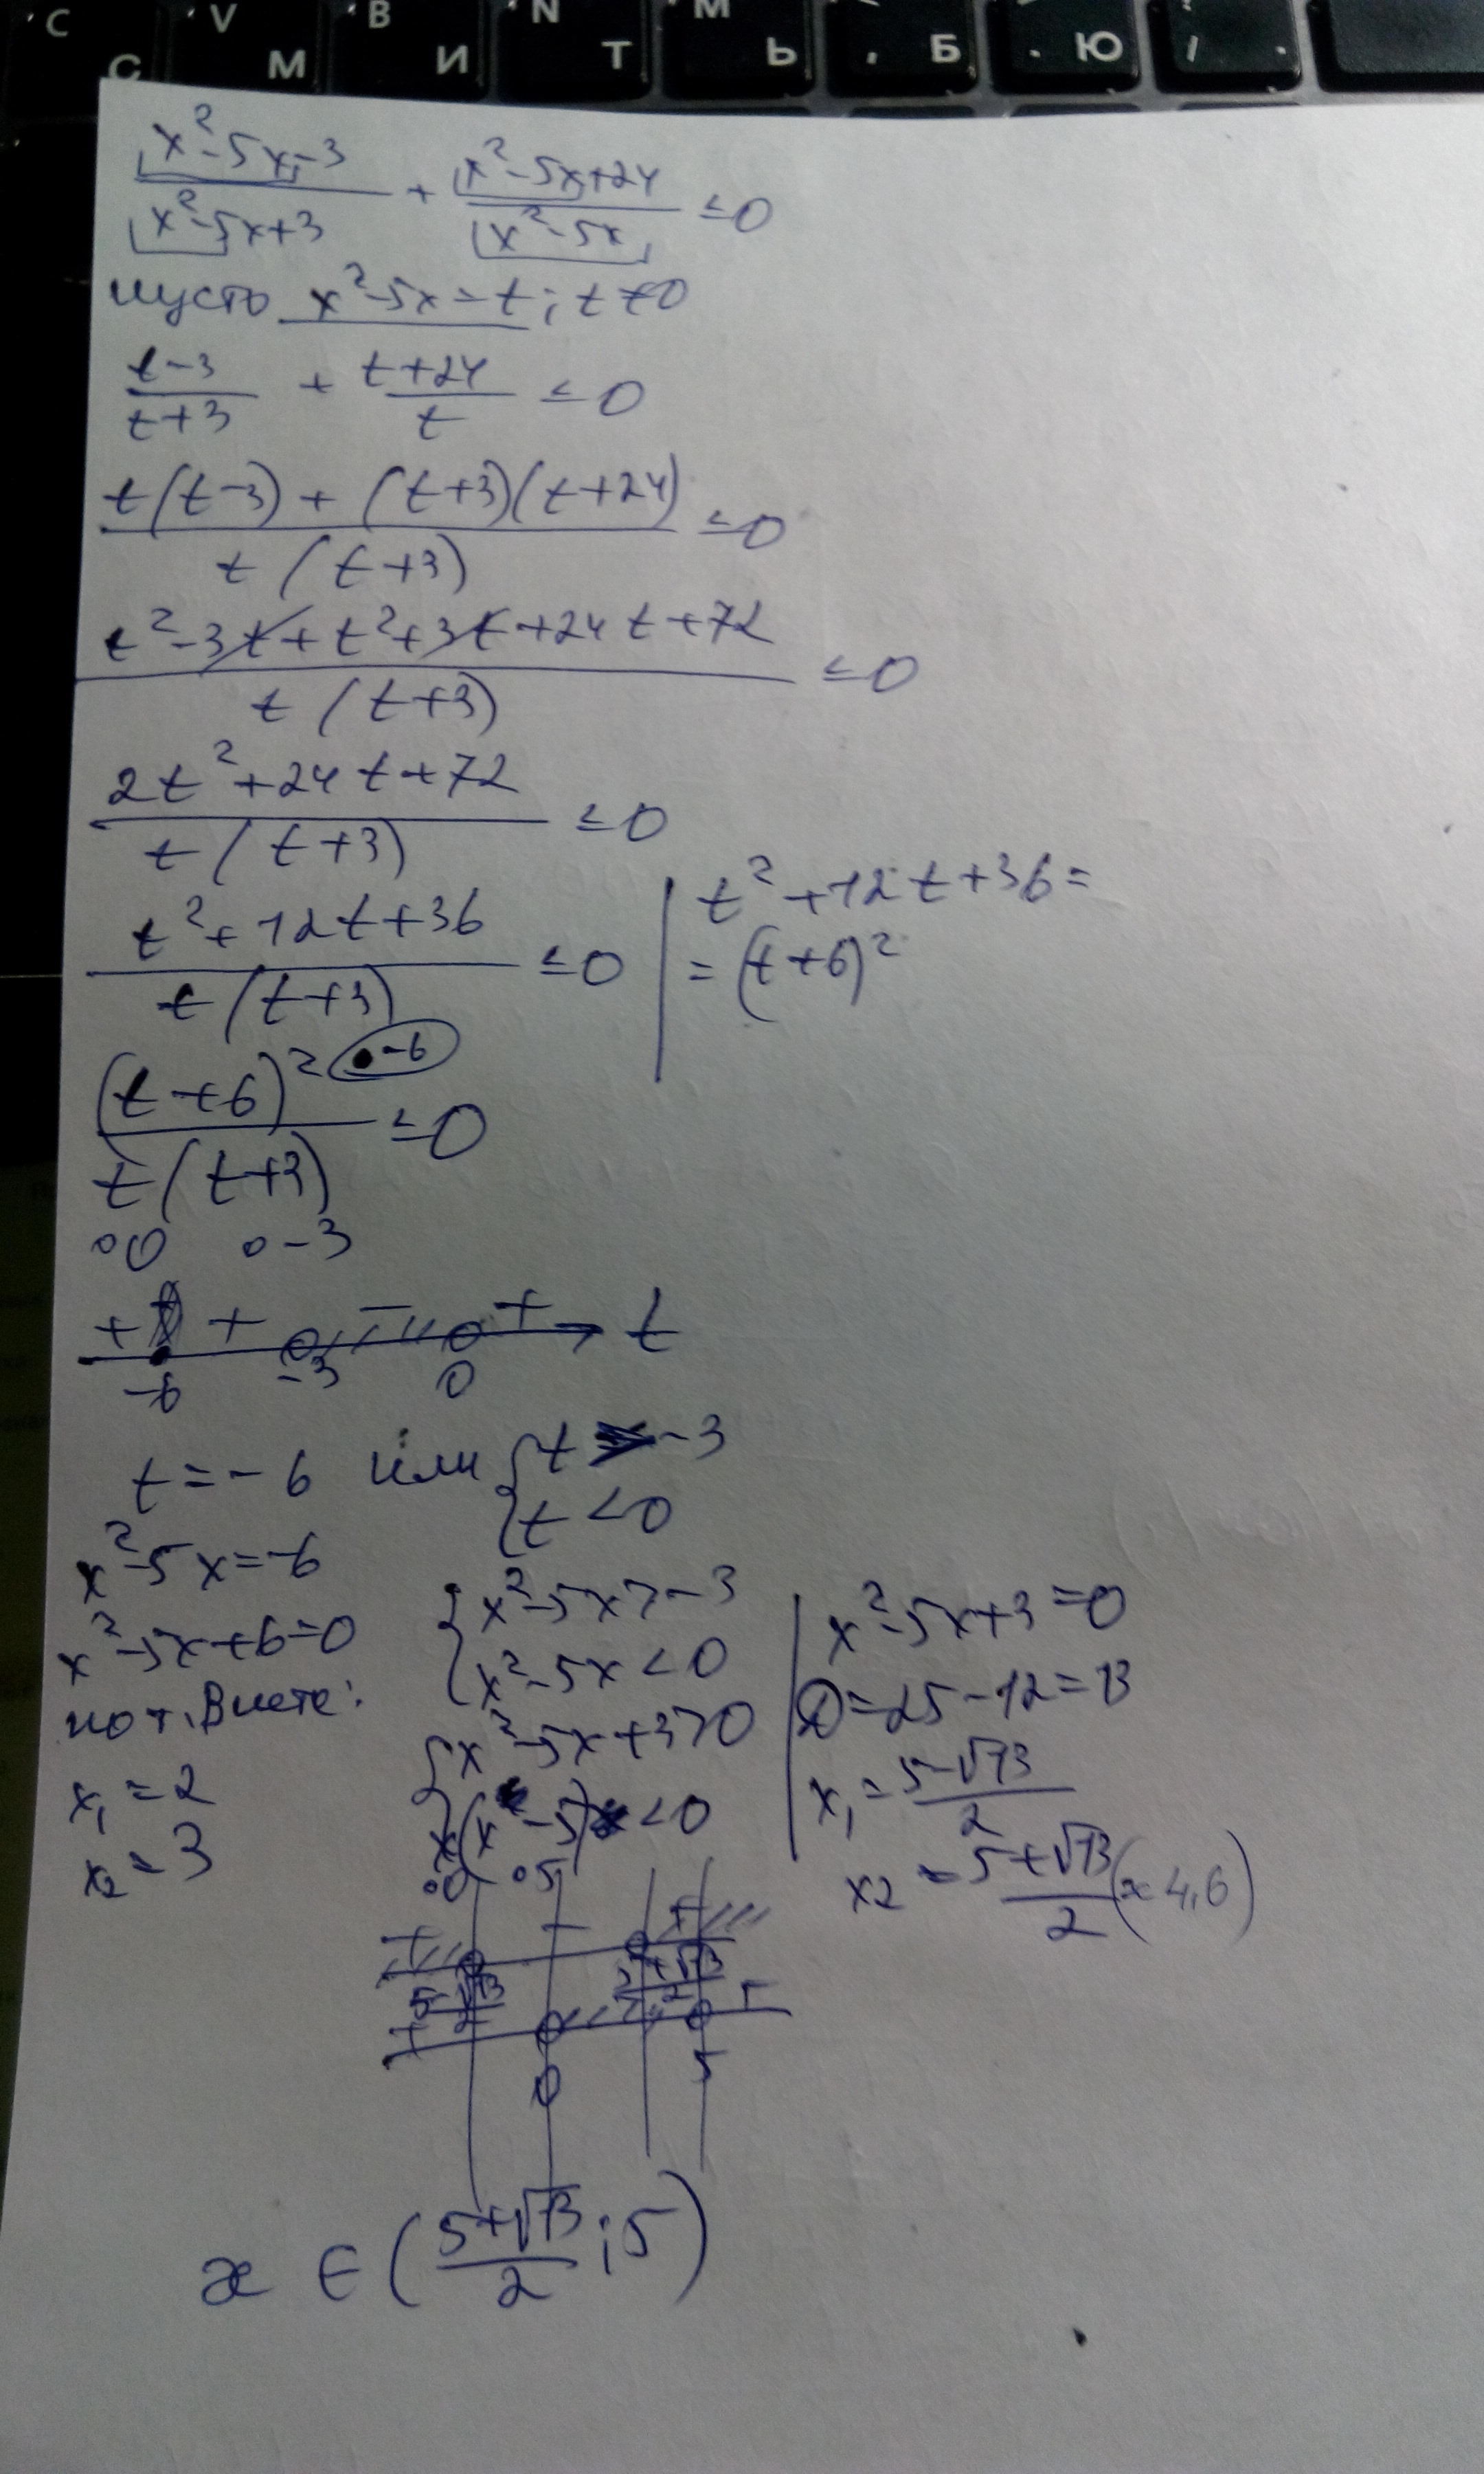 C V B N M
С М И Т Ь , Б . Ю / .
(x²-5x-3)/(x²-5x+3) + (x²-5x+24)/(x²-5x) ≤0
пусть x²-5x=t; t≠0
(t-3)/(t+3) + (t+24)/t ≤0
(t(t-3)+(t+3)(t+24))/(t(t+3)) ≤0
(t²-3t+t²+3t+24t+72)/(t(t+3)) ≤0
(2t²+24t+72)/(t(t+3)) ≤0
(t²+12t+36)/(t(t+3)) ≤0 | t²+12t+36=
=(t+6)²
•-6
(t+6)²/(t(t+3)) ≤0
∘0 ∘-3
+ + - + t
-6 -3 0
t=-6 или { t > -3
t<0
x²-5x=-6
{ x²-5x>-3
x²-5x<0
x²-5x+6=0
по т. Виета:
x₁=2
x₂=3
{ x²-5x+3>0
x(x-5)<0
∘0 ∘5
x²-5x+3=0
D=25-12=13
x₁=(5-√13)/2
x2=(5+√13)/2 (≈4,6)
+ - +
(5-√13)/2 (5+√13)/2
+ +
0 5
x ∈ ((5+√13)/2;5)